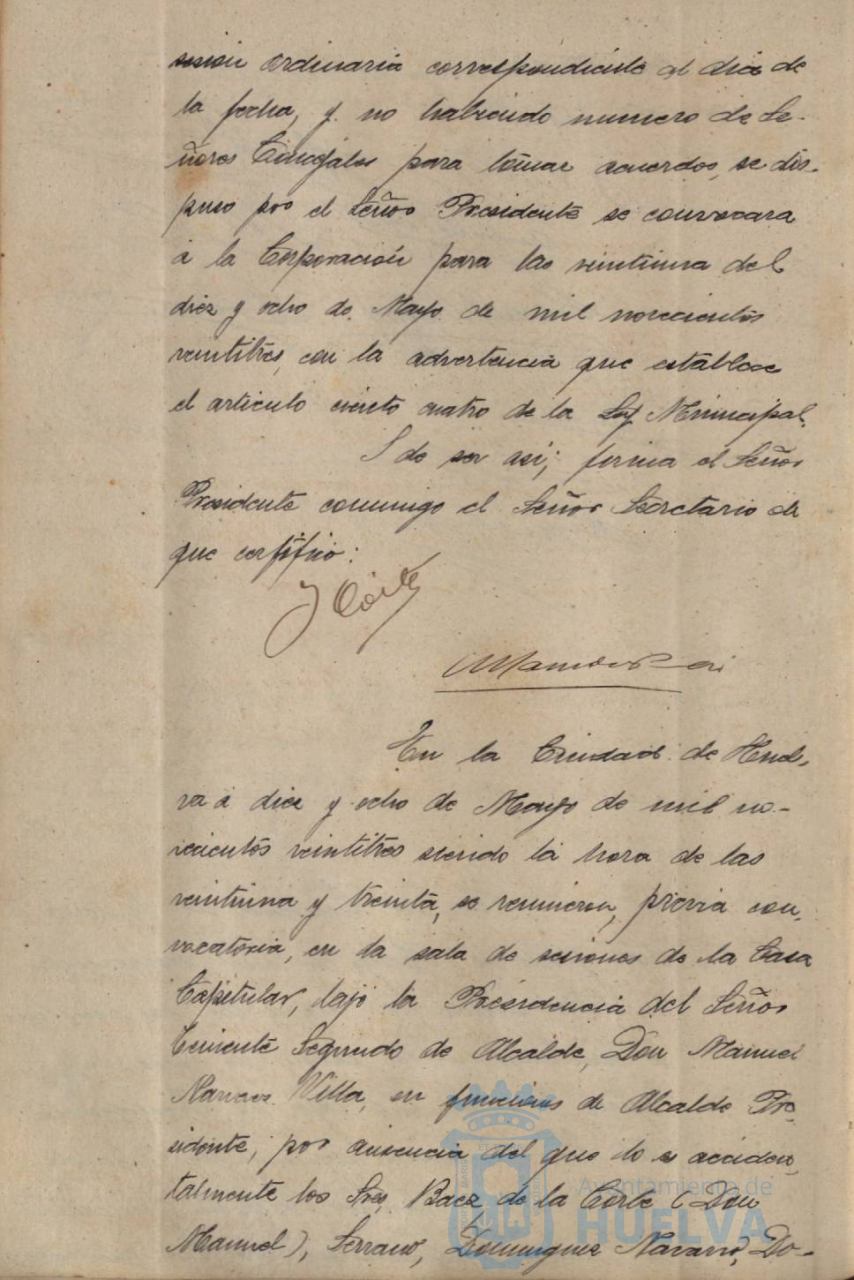 sesión ordinaria correspondiente al dia de
la fecha, y no habiendo numero de Se-
ñores Concejales para tomar acuerdos, se dis-
puso por el Señor Presidente se convocara
á la Corporación para las veintiuna del
diez y ocho de Mayo de mil novecientos
veintitres, con la advertencia que establece
el artículo ciento cuatro de la Ley Municipal.
Y de ser así; firma el Señor
Presidente conmigo el Señor Secretario de
que certifico:
En la Ciudad de Huel-
va á diez y ocho de Mayo de mil no-
vecientos veintitres siendo la hora de las
veintiuna y treinta, se reunieron, previa con-
vocatoria, en la sala de sesiones de la Casa
Capitular, bajo la Presidencia del Señor
Teniente Segundo de Alcalde, Don Manuel
Villa, en funciones de Alcalde Pre
sidente, por ausencia del que lo es acciden
talmente los Sres. Baez de la Corte (Don
Manuel), Serrano, Dominguez Navarro, Do-
Ayuntamiento de
HUELVA